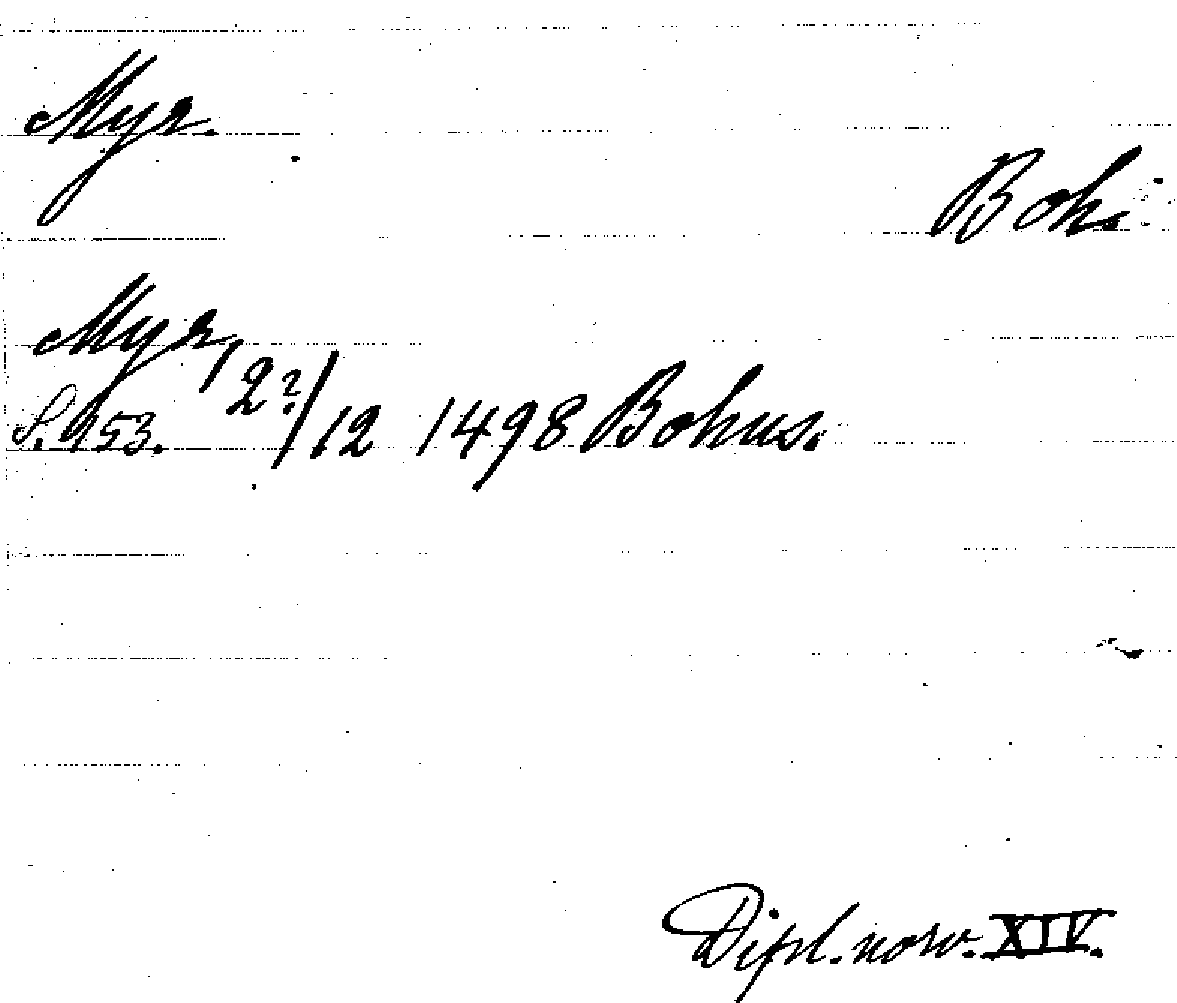 Myr.
Boh.
Myr, 12?/12 1498 Bohus.
S. 153.
Dipl. norv. XIV.